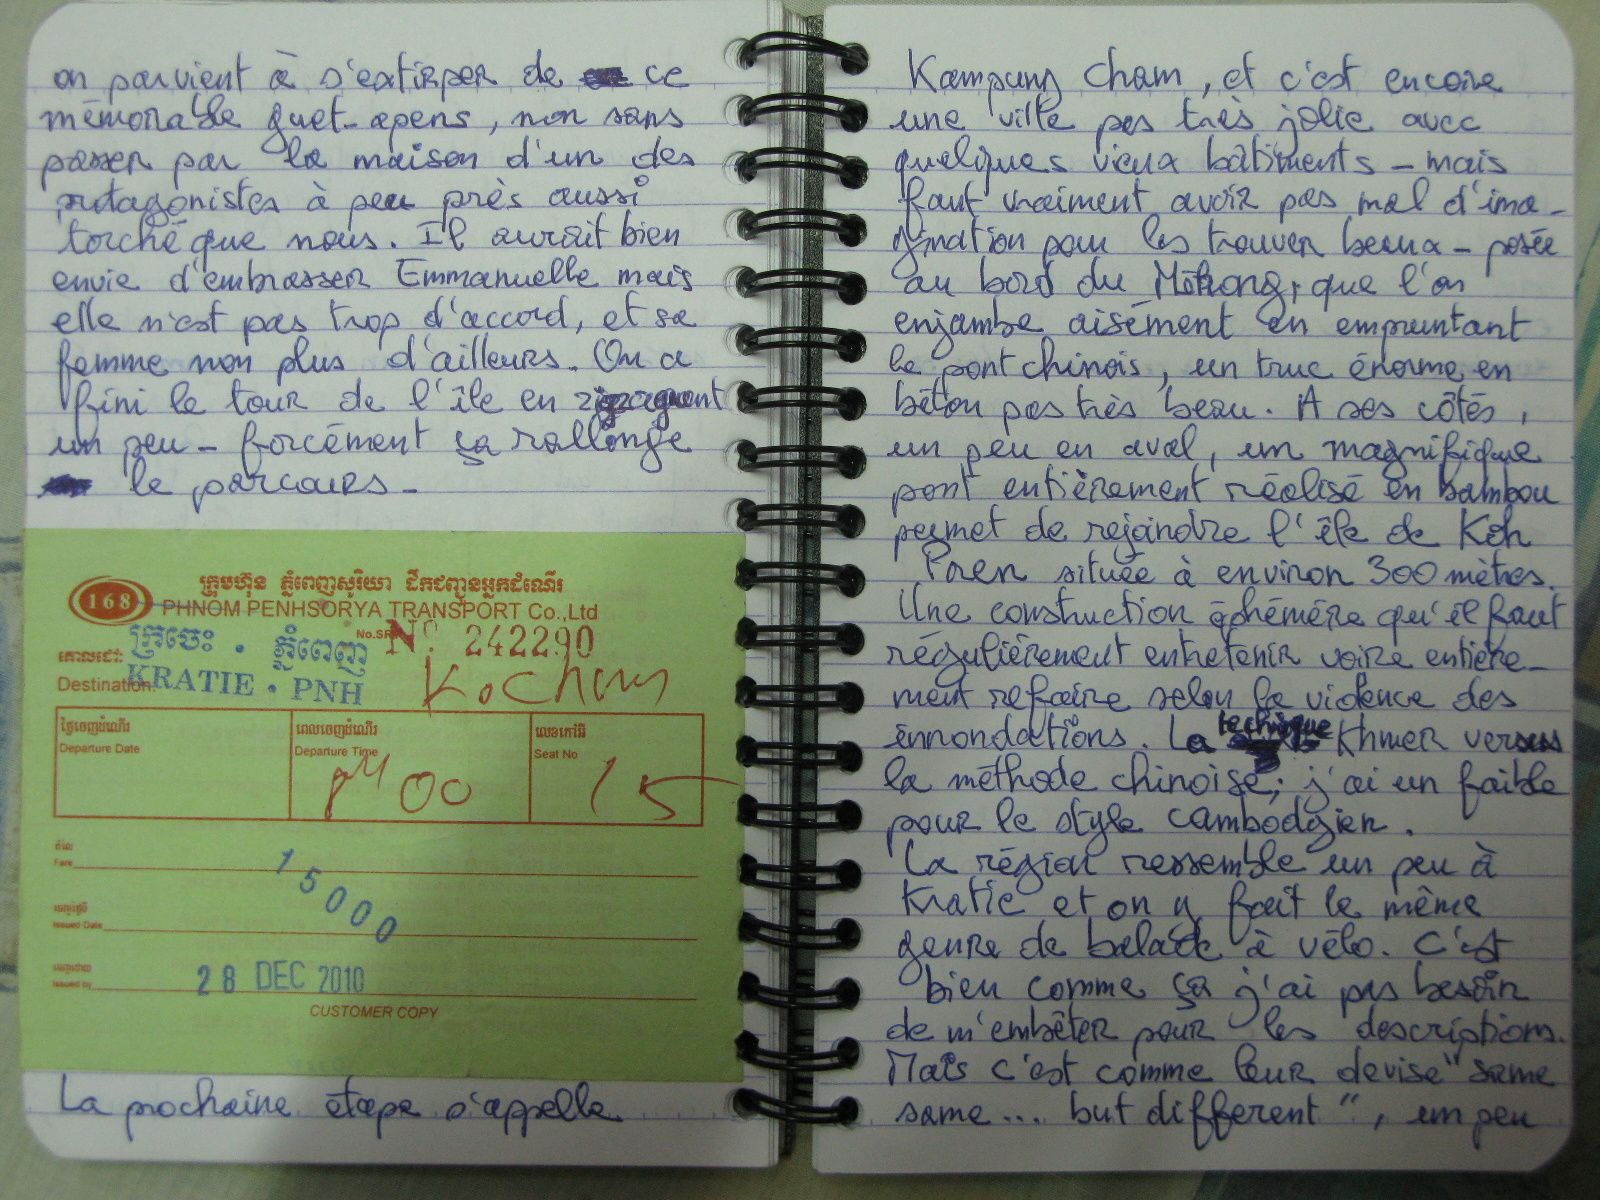 on parvient à s'extirper de ce
mémorable guet-apens, non sans
passer par la maison d'un des
protagonistes à peu près aussi
torché que nous. Il aurait bien
envie d'embrasser Emmanuelle mais
elle n'est pas trop d'accord, et sa
femme non plus d'ailleurs. On a
fini le tour de l'île en zigzaguant
un peu - forcément ça rallonge
le parcours -
168
ក្រុមហ៊ុន ភ្នំពេញសូរិយា ដឹកជញ្ជូនអ្នកដំណើរ
PHNOM PENHSORYA TRANSPORT Co.,Ltd
ក្រចេះ . ភ្នំពេញ
No. 242290
គោលដៅ:
Destination:
KRATIE . PNH
K. Cham
ថ្ងៃចេញដំណើរ
Departure Date
ពេលចេញដំណើរ
Departure Time
លេខកៅអី
Seat No
00
15
តំលៃ
Fare
15000
Issued Date
Issued by
28 DEC 2010
CUSTOMER COPY
La prochaine étape s'appelle
Kampung Cham, et c'est encore
une ville pas très jolie avec
quelques vieux bâtiments - mais
faut vraiment avoir pas mal d'ima-
gination pour les trouver beaux - posée
au bord du Mékong, que l'on
enjambe aisément en empruntant
le pont chinois, un truc énorme en
béton pas très beau. A ses côtés,
un peu en aval, un magnifique
pont entièrement réalisé en bambou
permet de rejoindre l'île de Koh
Paen située à environ 300 mètres.
Une construction éphémère qu'il faut
régulièrement entretenir voire entière-
ment refaire selon la violence des
innondations. La technique Khmer versus
la méthode chinoise; j'ai un faible
pour le style cambodgien.
La région ressemble un peu à
Kratie et on y fait le même
genre de balade à vélo. C'est
bien comme ça j'ai pas besoin
de m'embêter pour les descriptions.
Mais c'est comme leur devise "same
same... but different", un peu